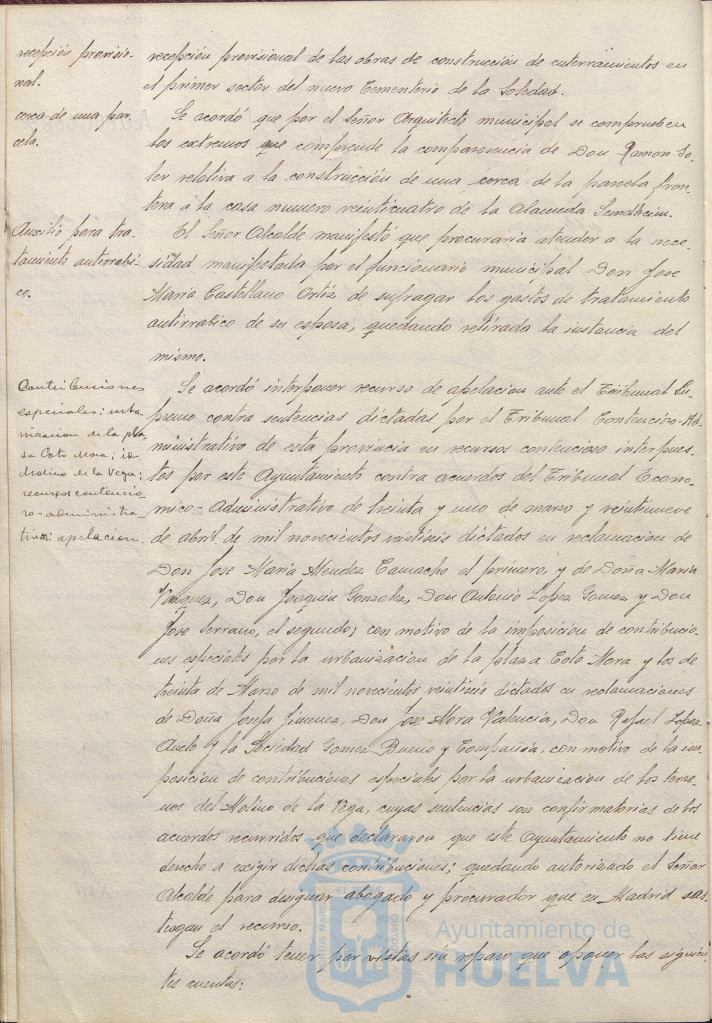 recepción provisio-
nal.
cerca de una par-
cela.
recepción provisional de las obras de construcción de enterramientos en
el primer sector del nuevo Cementerio de la Soledad.
Se acordó que por el Señor Arquitecto municipal se comprueben
los extremos que comprende la comparecencia de Don Ramon So-
ler relativa a la construcción de una cerca de la parcela fron-
tera a la casa numero veinticuatro de la Alameda Sundheim.
Auxilio para tra-
tamiento antirrabi-
co.
El Señor Alcalde manifestó que procuraria atender a la nece-
sidad manifestada por el funcionario municipal Don Jose
Maria Castellano Ortiz de sufragar los gastos de tratamiento
antirrabico de su esposa, quedando retirada la instancia del
mismo.
Contribuciones
especiales; urba-
nizacion de la pla-
za Coto Mora; id
Molino de la Vega;
recursos contencio
so-administra-
tivos: apelacion.
Se acordó interponer recurso de apelacion ante el Tribunal Su-
premo contra sentencias dictadas por el Tribunal Contencioso-Ad-
ministrativo de esta provincia en recursos contencioso interpues-
tos por este Ayuntamiento contra acuerdos del Tribunal Econo-
mico-Administrativo de treinta y uno de marzo y veintinueve
de abril de mil novecientos veintiseis dictados en reclamacion de
Don Jose Maria Mendez Camacho el primero, y de Doña Maria
Vazquez, Don Joaquin Gonzalez, Don Antonio Lopez Gomez y Don
Jose Serrano, el segundo; con motivo de la imposicion de contribucio-
nes especiales por la urbanizacion de la plaza Coto Mora y los de
treinta de Marzo de mil novecientos veintiseis dictados en reclamaciones
de Doña Josefa Jimenez, Don Jose Mora Valencia, Don Rafael Lopez
y la Sociedad Gomez Bueno y Compañia, con motivo de la im-
posicion de contribuciones especiales por la urbanizacion de los terre-
nos del Molino de la Vega, cuyas sentencias son confirmatorias de los
acuerdos recurridos que declararon que este Ayuntamiento no tiene
derecho a exigir dichas contribuciones; quedando autorizado el Señor
Alcalde para designar abogado y procurador que en Madrid sos-
tengan el recurso.
Se acordó tener por vistas sin reparo que oponer las siguien-
tes cuentas:
Ayuntamiento de
HUELVA